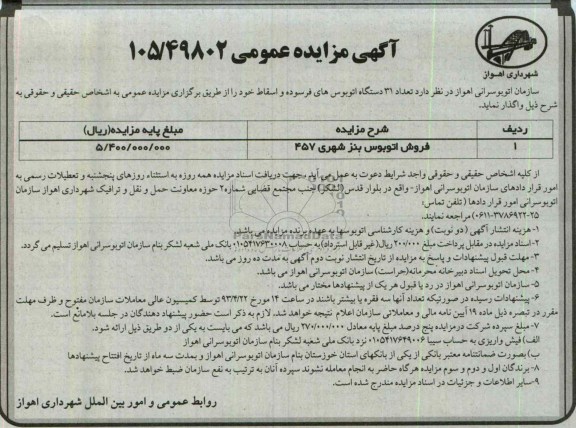 آگهی مزایده عمومی ۱۰۵/۴۹۸۰۲
شهرداری اهواز
سازمان اتوبوسرانی اهواز در نظر دارد تعداد ۳۱ دستگاه اتوبوس های فرسوده و اسقاط خود را از طریق برگزاری مزایده عمومی به اشخاص حقیقی و حقوقی به
شرح ذیل واگذار نماید.
ردیف شرح مزایده مبلغ پایه مزایده(ریال)
۱ فروش اتوبوس بنز شهری ۴۵۷ ۵/۴۰۰/۰۰۰/۰۰۰
از کلیه اشخاص حقیقی و حقوقی واجد شرایط دعوت به عمل می آید جهت دریافت اسناد مزایده همه روزه به استثناء روزهای پنجشنبه و تعطیلات رسمی به
امور قرار دادهای سازمان اتوبوسرانی اهواز- واقع در بلوار قدس (لشکر) جنب مجتمع قضایی شماره۲ حوزه معاونت حمل و نقل و ترافیک شهرداری اهواز سازمان
اتوبوسرانی امور قرار دادها ( تلفن تماس:
۲۵-۳۷۸۶۹۲۲-۰۶۱۱) مراجعه نمایند.
۱-هزینه انتشار آگهی (دو نوبت) و هزینه کارشناسی اتوبوسها به عهده برنده مزایده می باشد.
۲-اسناد مزایده در مقابل پرداخت مبلغ ۲۰۰/۰۰۰ ریال(غیر قابل استرداد) به حساب ۰۱۰۵۴۱۷۶۳۰۰۰۸ بانک ملی شعبه لشکر بنام سازمان اتوبوسرانی اهواز تسلیم می گردد.
۳-مهلت قبول پیشنهادات و پاسخ به مزایده از تاریخ انتشار نوبت دوم آگهی به مدت ده روز می باشد.
۴-محل تحویل اسناد دبیرخانه محرمانه(حراست) سازمان اتوبوسرانی اهواز می باشد.
۵- سازمان اتوبوسرانی اهواز در رد یا قبول هر یک از پیشنهادها مختار می باشد.
۶- پیشنهادات رسیده در صورتیکه تعداد آنها سه فقره یا بیشتر باشند در ساعت ۱۴ مورخ ۹۳/۴/۲۲ توسط کمیسیون عالی معاملات سازمان مفتوح و ظرف مهلت
مقرر در تبصره ذیل ماده ۱۹ آیین نامه مالی و معاملاتی سازمان اعلام نتیجه خواهد شد. لازم به ذکر است حضور پیشنهاد دهندگان در جلسه بلامانع است.
۷- مبلغ سپرده شرکت درمزایده پنج درصد مبلغ پایه معادل ۲۷۰/۰۰۰/۰۰۰ ریال می باشد که می بایست به یکی از دو طریق ذیل ارائه شود.
الف) فیش واریزی به حساب سیبا ۰۱۰۵۴۱۷۶۴۹۰۰۶ نزد بانک ملی شعبه لشکر بنام سازمان اتوبوسرانی اهواز
ب) بصورت ضمانتنامه معتبر بانکی از یکی از بانکهای استان خوزستان بنام سازمان اتوبوسرانی اهواز و بمدت سه ماه از تاریخ افتتاح پیشنهادها
۸-برندگان اول و دوم و سوم مزایده هرگاه حاضر به انجام معامله نشوند سپرده آنان به ترتیب به نفع سازمان ضبط خواهد شد.
۹-سایر اطلاعات و جزئیات در اسناد مزایده مندرج شده است.
روابط عمومی و امور بین الملل شهرداری اهواز